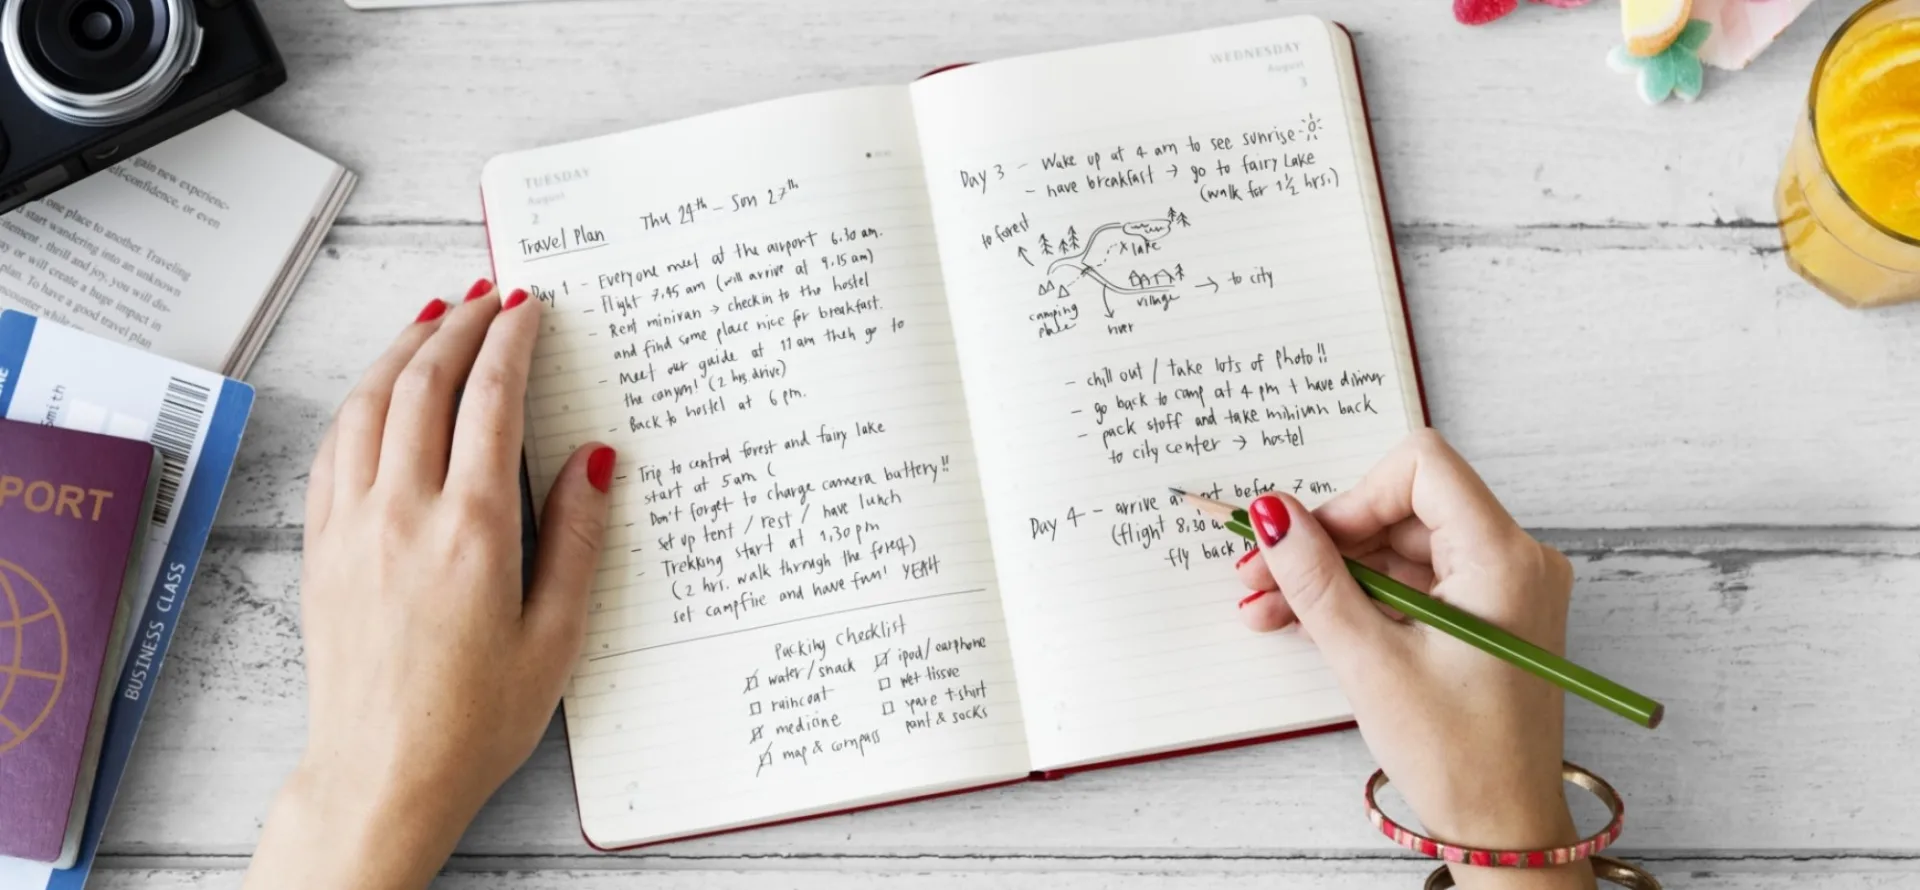 TUESDAY
August
2
Travel Plan Thu 24th - Sun 27th
Day 1 - Everyone meet at the airport 6.30 am.
- Flight 7.45 am (will arrive at 9.15 am)
- Rent minivan → check in to the hostel
and find some place nice for breakfast.
- Meet our guide at 11 am then go to
the canyon! (2 hrs. drive)
- Back to hostel at 6 pm.
- Trip to central forest and fairy lake
start at 5 am (
- Don't forget to charge camera battery!!
- set up tent / rest / have lunch
- Trekking start at 1.30 pm
(2 hrs. walk through the forest)
set campfire and have fun! YEAH
Packing Checklist
water/snack
raincoat
medicine
map & compass
ipod/earphone
wet tissue
spare t-shirt
pant & socks
WEDNESDAY
August
3
Day 3 - Wake up at 4 am to see sunrise
- have breakfast → go to fairy Lake
(walk for 1½ hrs.)
to forest
x lake
village → to city
camping
place
river
- chill out / take lots of photo!!
- go back to camp at 4 pm + have dinner
- pack stuff and take minivan back
to city center → hostel
Day 4 - arrive before 7 am.
(flight 8.30
fly back
gain new experienc-
self-confidence, or even
one place to another. Traveling
d start wandering into an unknown
itement, thrill and joy, you will dis-
ay or will create a huge impact in
plan. To have a good travel plan
ncounter while
Smith
BUSINESS CLASS
PORT